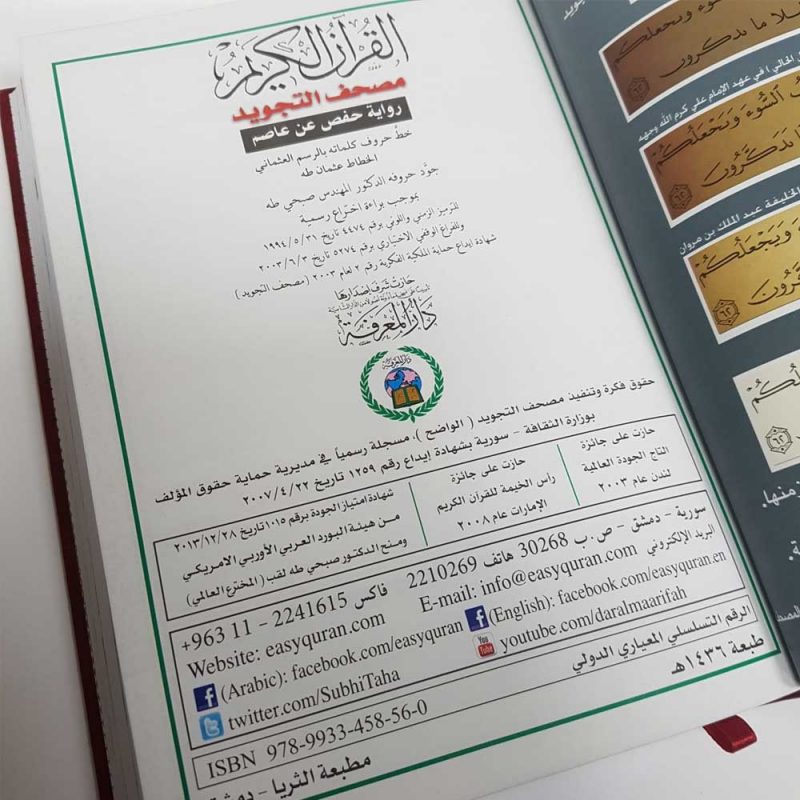 القرآن الكريم
مصحف التجويد
رواية حفص عن عاصم
خطّ حروف كلماته بالرسم العثماني
الخطاط عثمان طه
جوّد حروفه الدكتور المهندس صبحي طه
بموجب براءة اختراع رسمية
للترميز الزمني واللوني برقم ٤٤٧٤ تاريخ ١٩٩٤/٥/٣١
وللفراغ الوقفي الاختياري برقم ٥٢٧٤ تاريخ ٢٠٠٣/٦/٣
شهادة ايداع حماية الملكية الفكرية رقم ٢ لعام ٢٠٠٣ (مصحف التجويد)
حازت شرف إصدارها
دار المعرفة
حقوق فكرة وتنفيذ مصحف التجويد ( الواضح )، مسجلة رسمياً في مديرية حماية حقوق المؤلف
بوزارة الثقافة – سورية بشهادة إيداع رقم ١٢٥٩ تاريخ ٢٠٠٧/٤/٢٢
حازت على جائزة
التاج الجودة العالمية
لندن عام ٢٠٠٣
حازت على جائزة
رأس الخيمة للقرآن الكريم
الإمارات عام ٢٠٠٨
شهادة امتياز الجودة برقم ١٠١٥ تاريخ ٢٠١٣/١٢/٢٨
من هيئة البورد العربي الأوربي الامريكي
ومنح الدكتور صبحي طه لقب ( المخترع العالمي )
سورية – دمشق – ص.ب 30268 هاتف 2210269 فاكس 2241615 - 11 963+
البريد الإلكتروني E-mail: info@easyquran.com Website: easyquran.com
(Arabic): facebook.com/easyquran (English): facebook.com/easyquran.en
twitter.com/SubhiTaha You Tube youtube.com/daralmaarifah
الرقم التسلسلي المعياري الدولي
ISBN 978-9933-458-56-0
طبعة ١٤٣٦هـ
مطبعة الثريا - دمشق
السُّوٓءَ وَيَجْعَلُكُمْ
تَذَكَّرُونَ
٦٢
الخليفة عبد الملك بن مروان
وَيَجْعَلُكُمْ
٦٢
٦٢